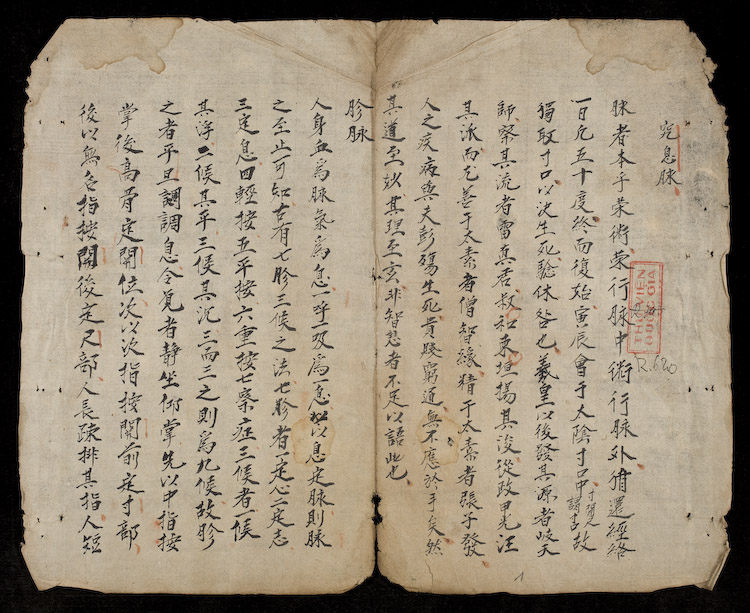 息脉
脉者本乎荣術荣行脉中術行脉外循還經絡
一日凡五十度終而復始寅辰會于太陰寸口中故
獨取寸口以决生死驗休咎也羲皇以後發其源者岐天
師察其流者雷真君叔和東垣揚其波從政甲先汪
其派而尤善于太素者僧智緣精于太素者張子發
人之疾病與夫彭殤生死貴賤窮通無不應於手矣然
其道至妙其理至玄非智慧者不足以語此也
胗脉
人身血爲脉氣爲息一呼一吸爲一息以息定脉則脉
之至止可知古有七胗三候之法七胗者一定心二定志
三定息四輕按五平按六重按七察症三候者一候
其浮二候其平三候其沉三而三之則爲九候故胗
之者平旦調調息令覓者静坐仰掌先以中指按
掌後高骨定関位次以次指按関前定寸部
後以無名指按関後定尺部人長疎排其指人短
THU VIEN
QUOC GIA
R.620
1